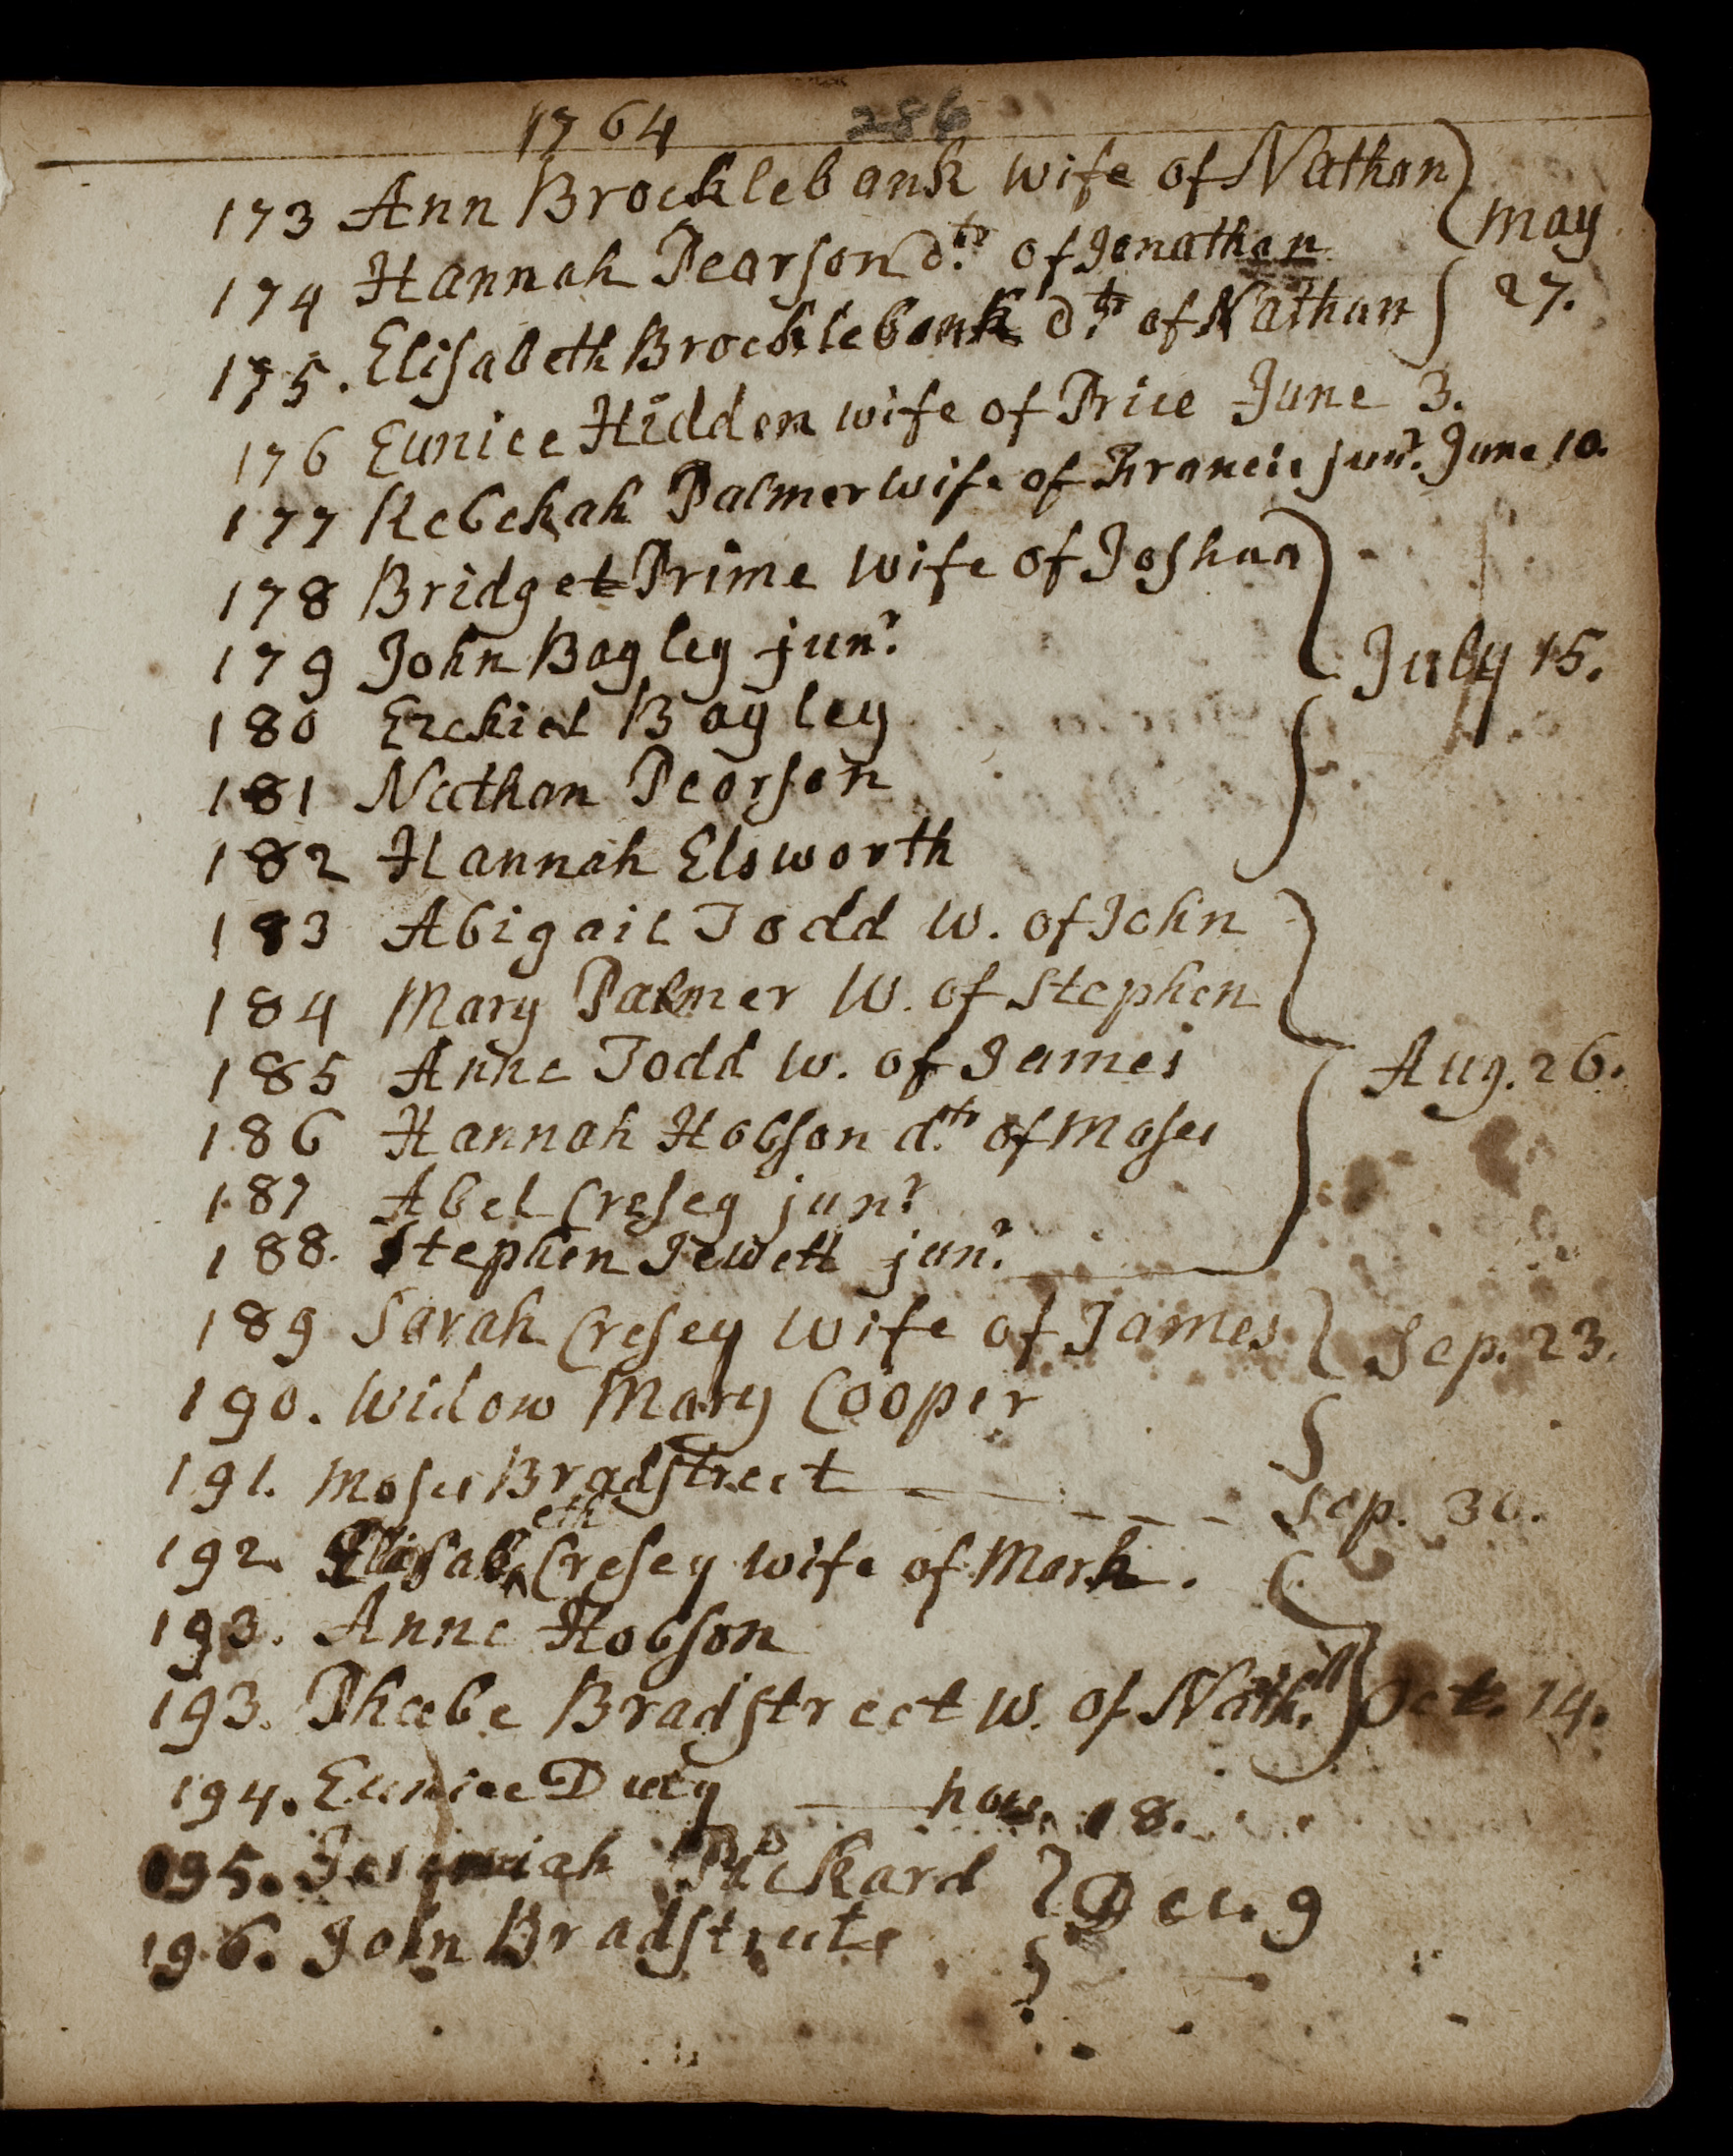 1764 286
173 Ann Brocklebank wife of Nathan
174 Hannah Pearson dtr. of Jonathan } May
175. Elisabeth Brocklebank dtr. of Nathan } 27.
176 Eunice Hidden wife of Price June 3.
177 Rebekah Palmer wife of Francis junr. June 10.
178 Bridget Prime wife of Joshua
179 John Bagley junr. } July 15.
180 Ezekiel Bagley
181 Nathan Pearson
182 Hannah Elsworth
183 Abigail Todd w. of John
184 Mary Palmer W. of Stephen
185 Anne Todd w. of James } Aug. 26.
186 Hannah Hobson dtr. of Moses
187 Abel Cresey junr
188. Stephen Jewett junr.
189 Sarah Cresey wife of James } Sep. 23.
190. Widow Mary Cooper
191. Moses Bradstreet - - - - Sep. 30.
192. Elisabeth Cresey wife of Mark.
193. Anne Hobson
193. Phœbe Bradstreet w. of Nath.ill } Oct. 14.
194. Eunice Duty — nov. 18.
195. Jeremiah Pickard } Dec. 9
196. John Bradstrute